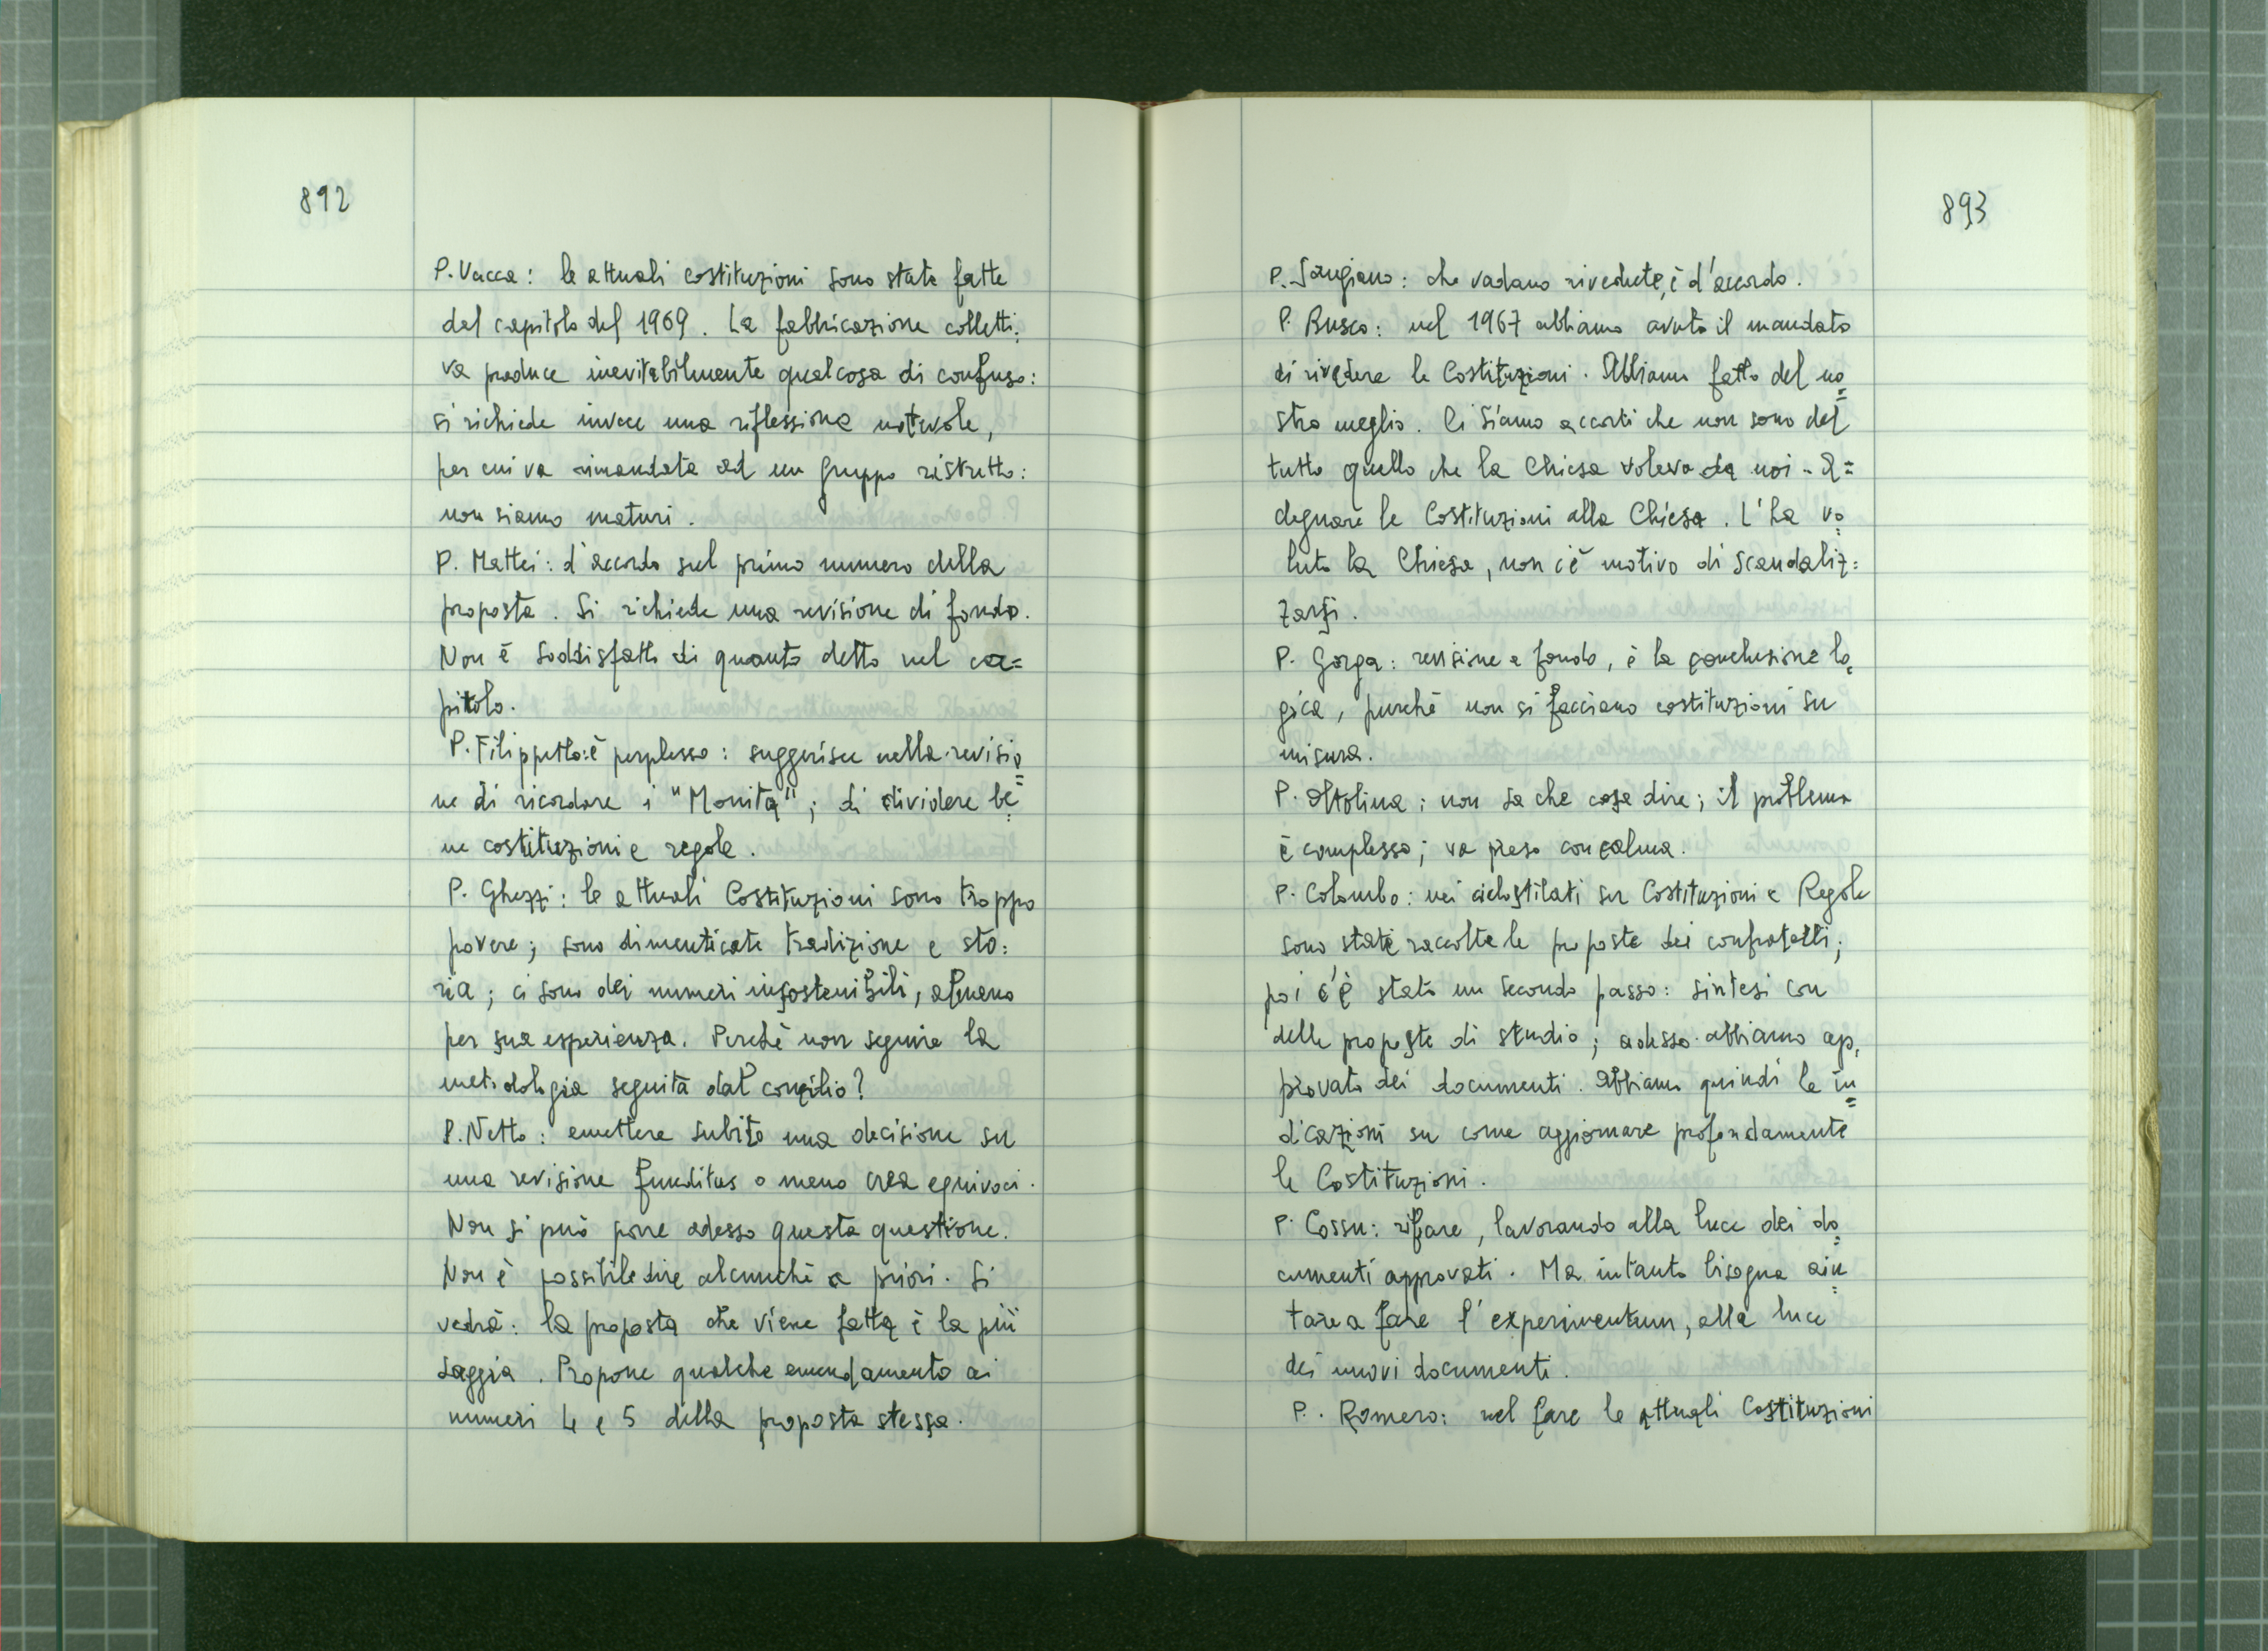 892
P. Vacca: le attuali costituzioni sono state fatte
dal capitolo del 1969. La fabbricazione colletti=
va produce inevitabilmente qualcosa di confuso:
si richiede invece una riflessione notevole,
per cui va rimandata ad un gruppo ristretto:
non siamo maturi.
P. Mattei: d'accordo sul primo numero della
proposta. Si richiede una revisione di fondo.
Non è soddisfatto di quanto detto nel ca=
pitolo.
P. Filippetto: è perplesso: suggerisce nella revisio=
ne di ricordare i "Monita"; di dividere be=
ne costituzioni e regole.
P. Ghezzi: le attuali Costituzioni sono troppo
povere; sono dimenticate tradizione e sto=
ria; ci sono dei numeri insostenibili, almeno
per sua esperienza. Perchè non seguire la
metodologia seguita dal concilio?
P. Netto: emettere subito una decisione su
una revisione funditus o meno crea equivoci.
Non si può porre adesso questa questione.
Non è possibile dire alcunchè a priori. Si
vedrà: la proposta che viene fatta è la più
saggia. Propone qualche emendamento ai
numeri 4 e 5 della proposta stessa.
893
P. Sangiano: che vadano rivedute, è d'accordo.
P. Busco: nel 1967 abbiamo avuto il mandato
di rivedere le Costituzioni. Abbiamo fatto del no=
stro meglio. Ci siamo accorti che non sono del
tutto quello che la Chiesa voleva da noi - A=
deguare le Costituzioni alla Chiesa. L'ha vo=
luto la Chiesa, non c'è motivo di scandaliz=
zarsi.
P. Gorga: revisione a fondo, è la conclusione lo=
gica, purchè non si facciano costituzioni su
misura.
P. Oltolina: non sa che cosa dire; il problema
è complesso; va preso con calma.
P. Colombo: nei ciclostilati su Costituzioni e Regole
sono state raccolte le proposte dei confratelli;
poi c'è stato un secondo passo: sintesi con
delle proposte di studio; adesso abbiamo ap=
provato dei documenti. Abbiamo quindi le in=
dicazioni su come aggiornare profondamente
le Costituzioni.
P. Cossu: rifare, lavorando alla luce dei do=
cumenti approvati. Ma intanto bisogna aiu=
tare a fare l'experimentum, alla luce
dei nuovi documenti.
P. Romero: nel fare le attuali Costituzioni